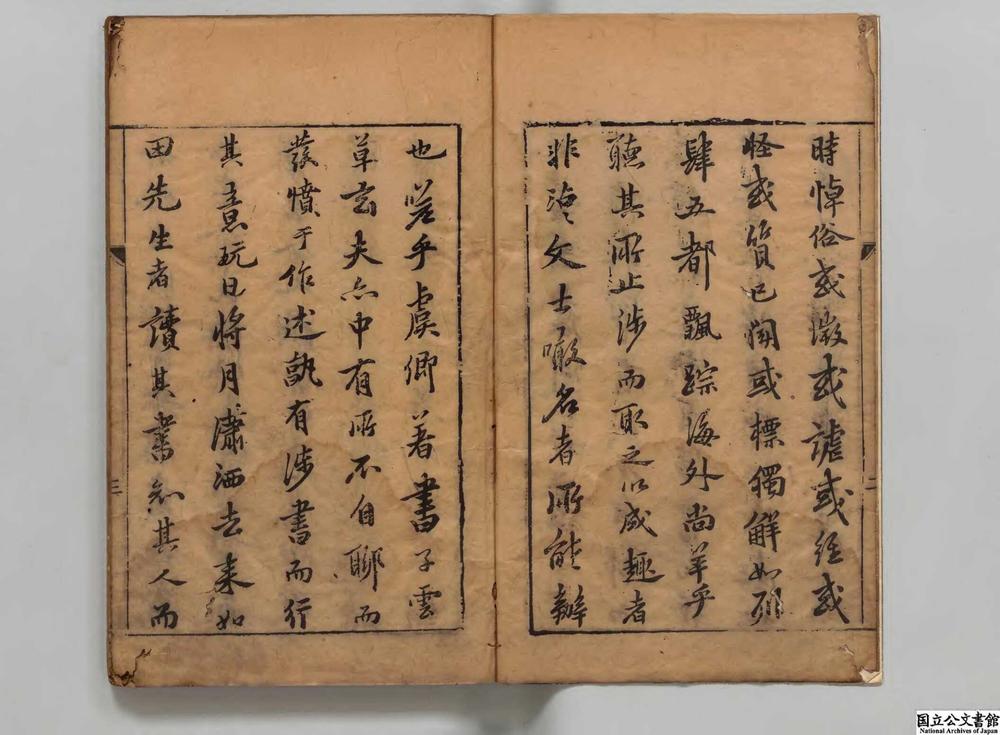 時悼俗或激或謔或經或
怪或質已聞或標獨解如列
肆五都飄踪海外尚羊乎
聽其所止涉而取之以成趣者
非谫文士噉名者所能辦
二
也嗟乎虞卿著書子雲
草玄夫亦中有所不自聊而
發憤于作述孰有涉書而行
其意玩日將月瀟洒去来如
田先生者讀其書知其人而
三
国立公文書館
National Archives of Japan